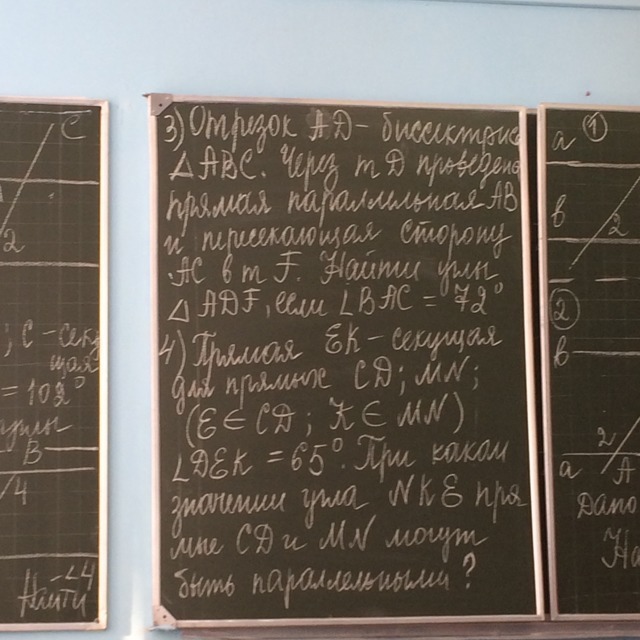 C
2
; C - сек
щая
= 102°
B
4
Найти
∠4
3) Отрезок AD - биссектриса
△ ABC. Через т D проведена
прямая параллельная AB
и пересекающая сторону
AC в т F. Найти углы
△ ADF, если ∠BAC = 72°
4) Прямая EK - секущая
для прямых CD; MN;
(E ∈ CD ; K ∈ MN)
∠DEK = 65°. При каком
значении угла NKE пря
мые CD и MN могут
быть параллельными ?
a
1
в
2
2
в
2
a
A
Дано
На